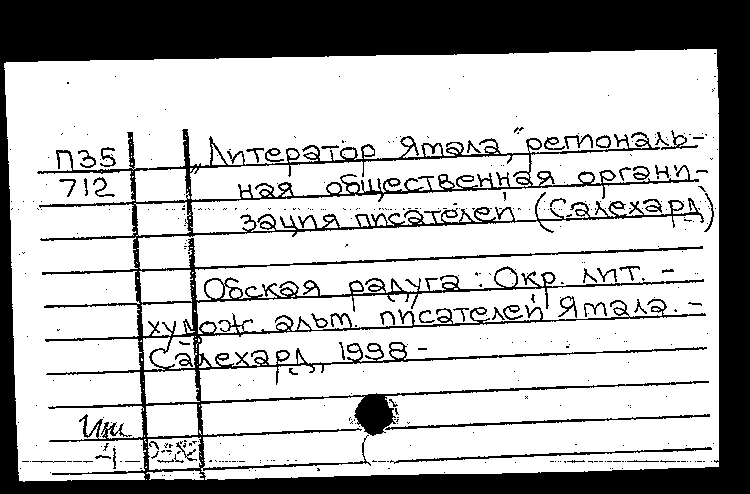 П35
712
„Литератор Ямала," региональ-
ная общественная органи-
зация писателей (Салехард)
Обская радуга: Окр. лит. -
худож. альм. писателей Ямала. -
Салехард, 1998 -